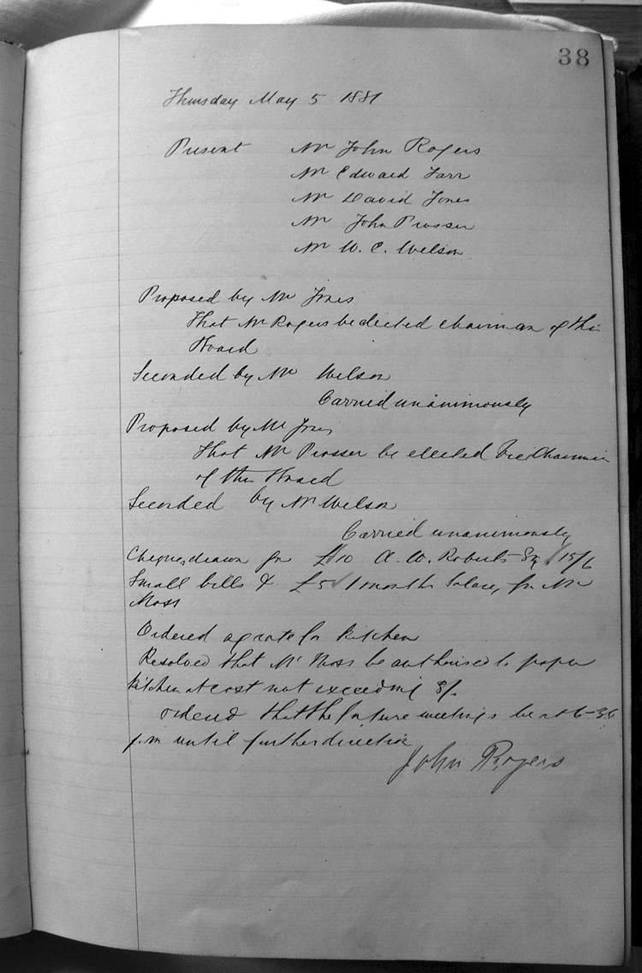 38
Thursday May 5 1881
Present Mr John Rogers
Mr Edward Farr
Mr David Jones
Mr John Prosser
Mr W. C. Wilson
Proposed by Mr Jones
That Mr Rogers be elected chairman of this
Board
Seconded by Mr Wilson
Carried unanimously
Proposed by Mr Jones
That Mr Prosser be elected Vice Chairman
of this Board
Seconded by Mr Wilson
Carried unanimously
Cheques drawn for £10 A. W. Roberts Esq 15/6
Small bills & £5 1 month Salary for Mr
Moss
Ordered a grate for Kitchen
Resolved that Mr Moss be authorised to paper
Kitchen at cost not exceeding 8/-
Ordered that the future meetings be at 6-30
p.m until further direction
John Rogers